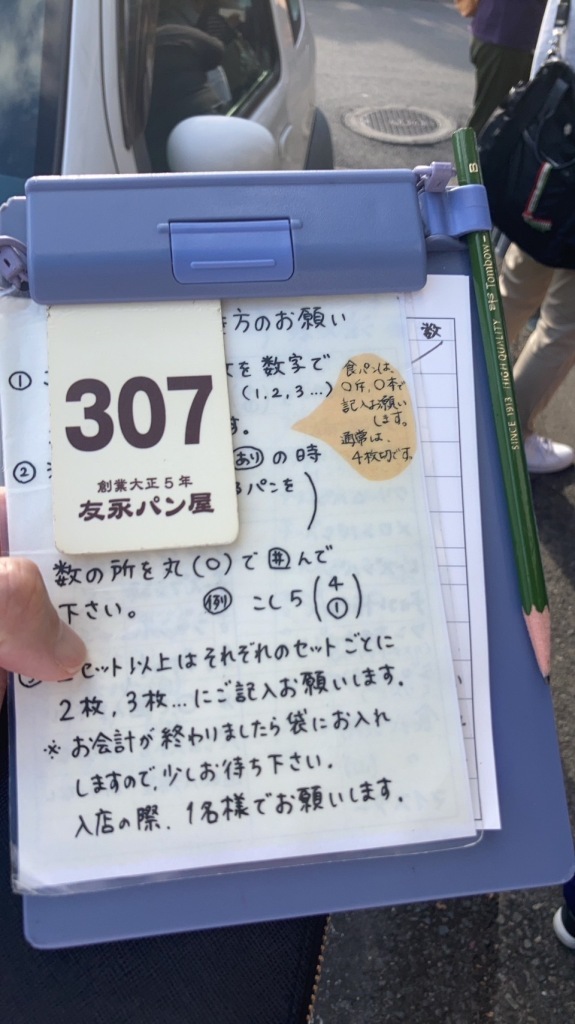 方のお願い
① を数字で
(1,2,3…)
す。
② あり の時
パンを
307
創業大正5年
友永パン屋
食パンは、
○斤,○本で
記入お願い
します。
通常は、
4枚切です。
数の所を丸(○)で囲んで
下さい。 例 こし5(4 ①)
セット以上はそれぞれのセットごとに
2枚,3枚…にご記入お願いします。
※お会計が終わりましたら袋にお入れ
しますので,少しお待ち下さい.
入店の際、1名様でお願いします。
数
B
Tombow
HIGH QUALITY
SINCE 1913